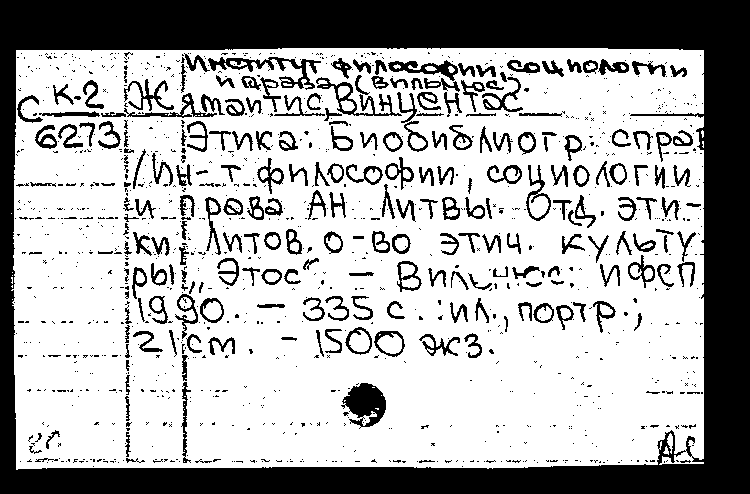 Институт философии, социологии
и права (Вильнюс).
С К-2 Жямайтис, Винцентас
6273 Этика: Биобиблиогр. справ
/Ин-т философии, социологии
и права АН Литвы. Отд. эти-
ки, Литов. о-во этич. культу-
ры „Этос“. — Вильнюс: ИФСП
1990. — 335 с. : ил., портр.;
21 см. — 1500 экз.